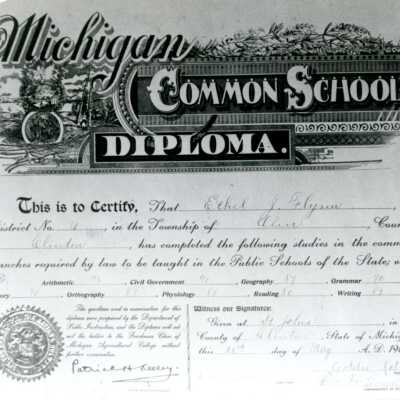 Michigan
COMMON SCHOOL
DIPLOMA.
This is to Certify, That Ethel J. Flynn
District No. 6, in the Township of Olive, Coun
Clinton, has completed the following studies in the comm
anches required by law to be taught in the Public Schools of the State;
Arithmetic Civil Government Geography Grammar 90
Orthography Physiology Reading 80 Writing
The questions used in examination for this
diploma were prepared by the Department of
Public Instruction, and the Diploma will ad-
mit the holder to the Freshman Class of
Michigan Agricultural College without
further examination.
Patrick H. Kelley
Witness our Signature:
Given at St Johns in
County of Clinton, State of Michig
this day of May A.D. 190